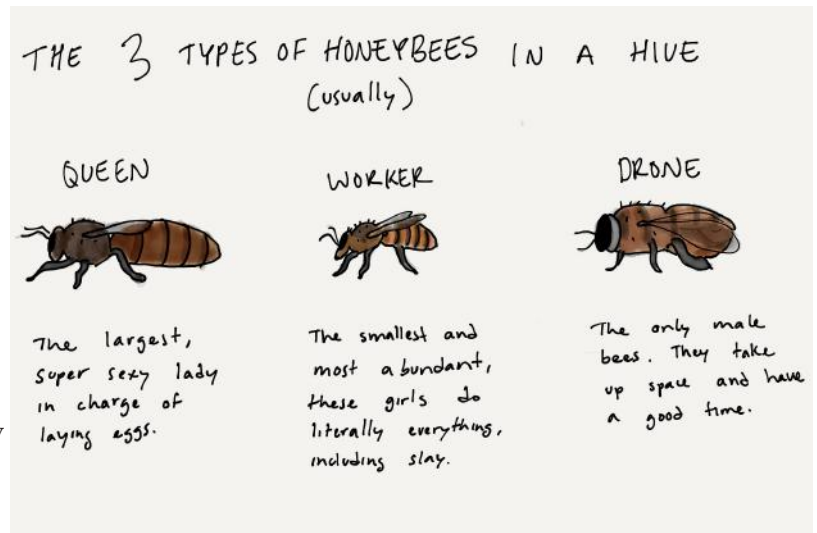 THE 3 TYPES OF HONEYBEES IN A HIVE
(usually)
QUEEN
The largest,
super sexy lady
in charge of
laying eggs.
WORKER
The smallest and
most abundant,
these girls do
literally everything,
including slay.
DRONE
The only male
bees. They take
up space and have
a good time.